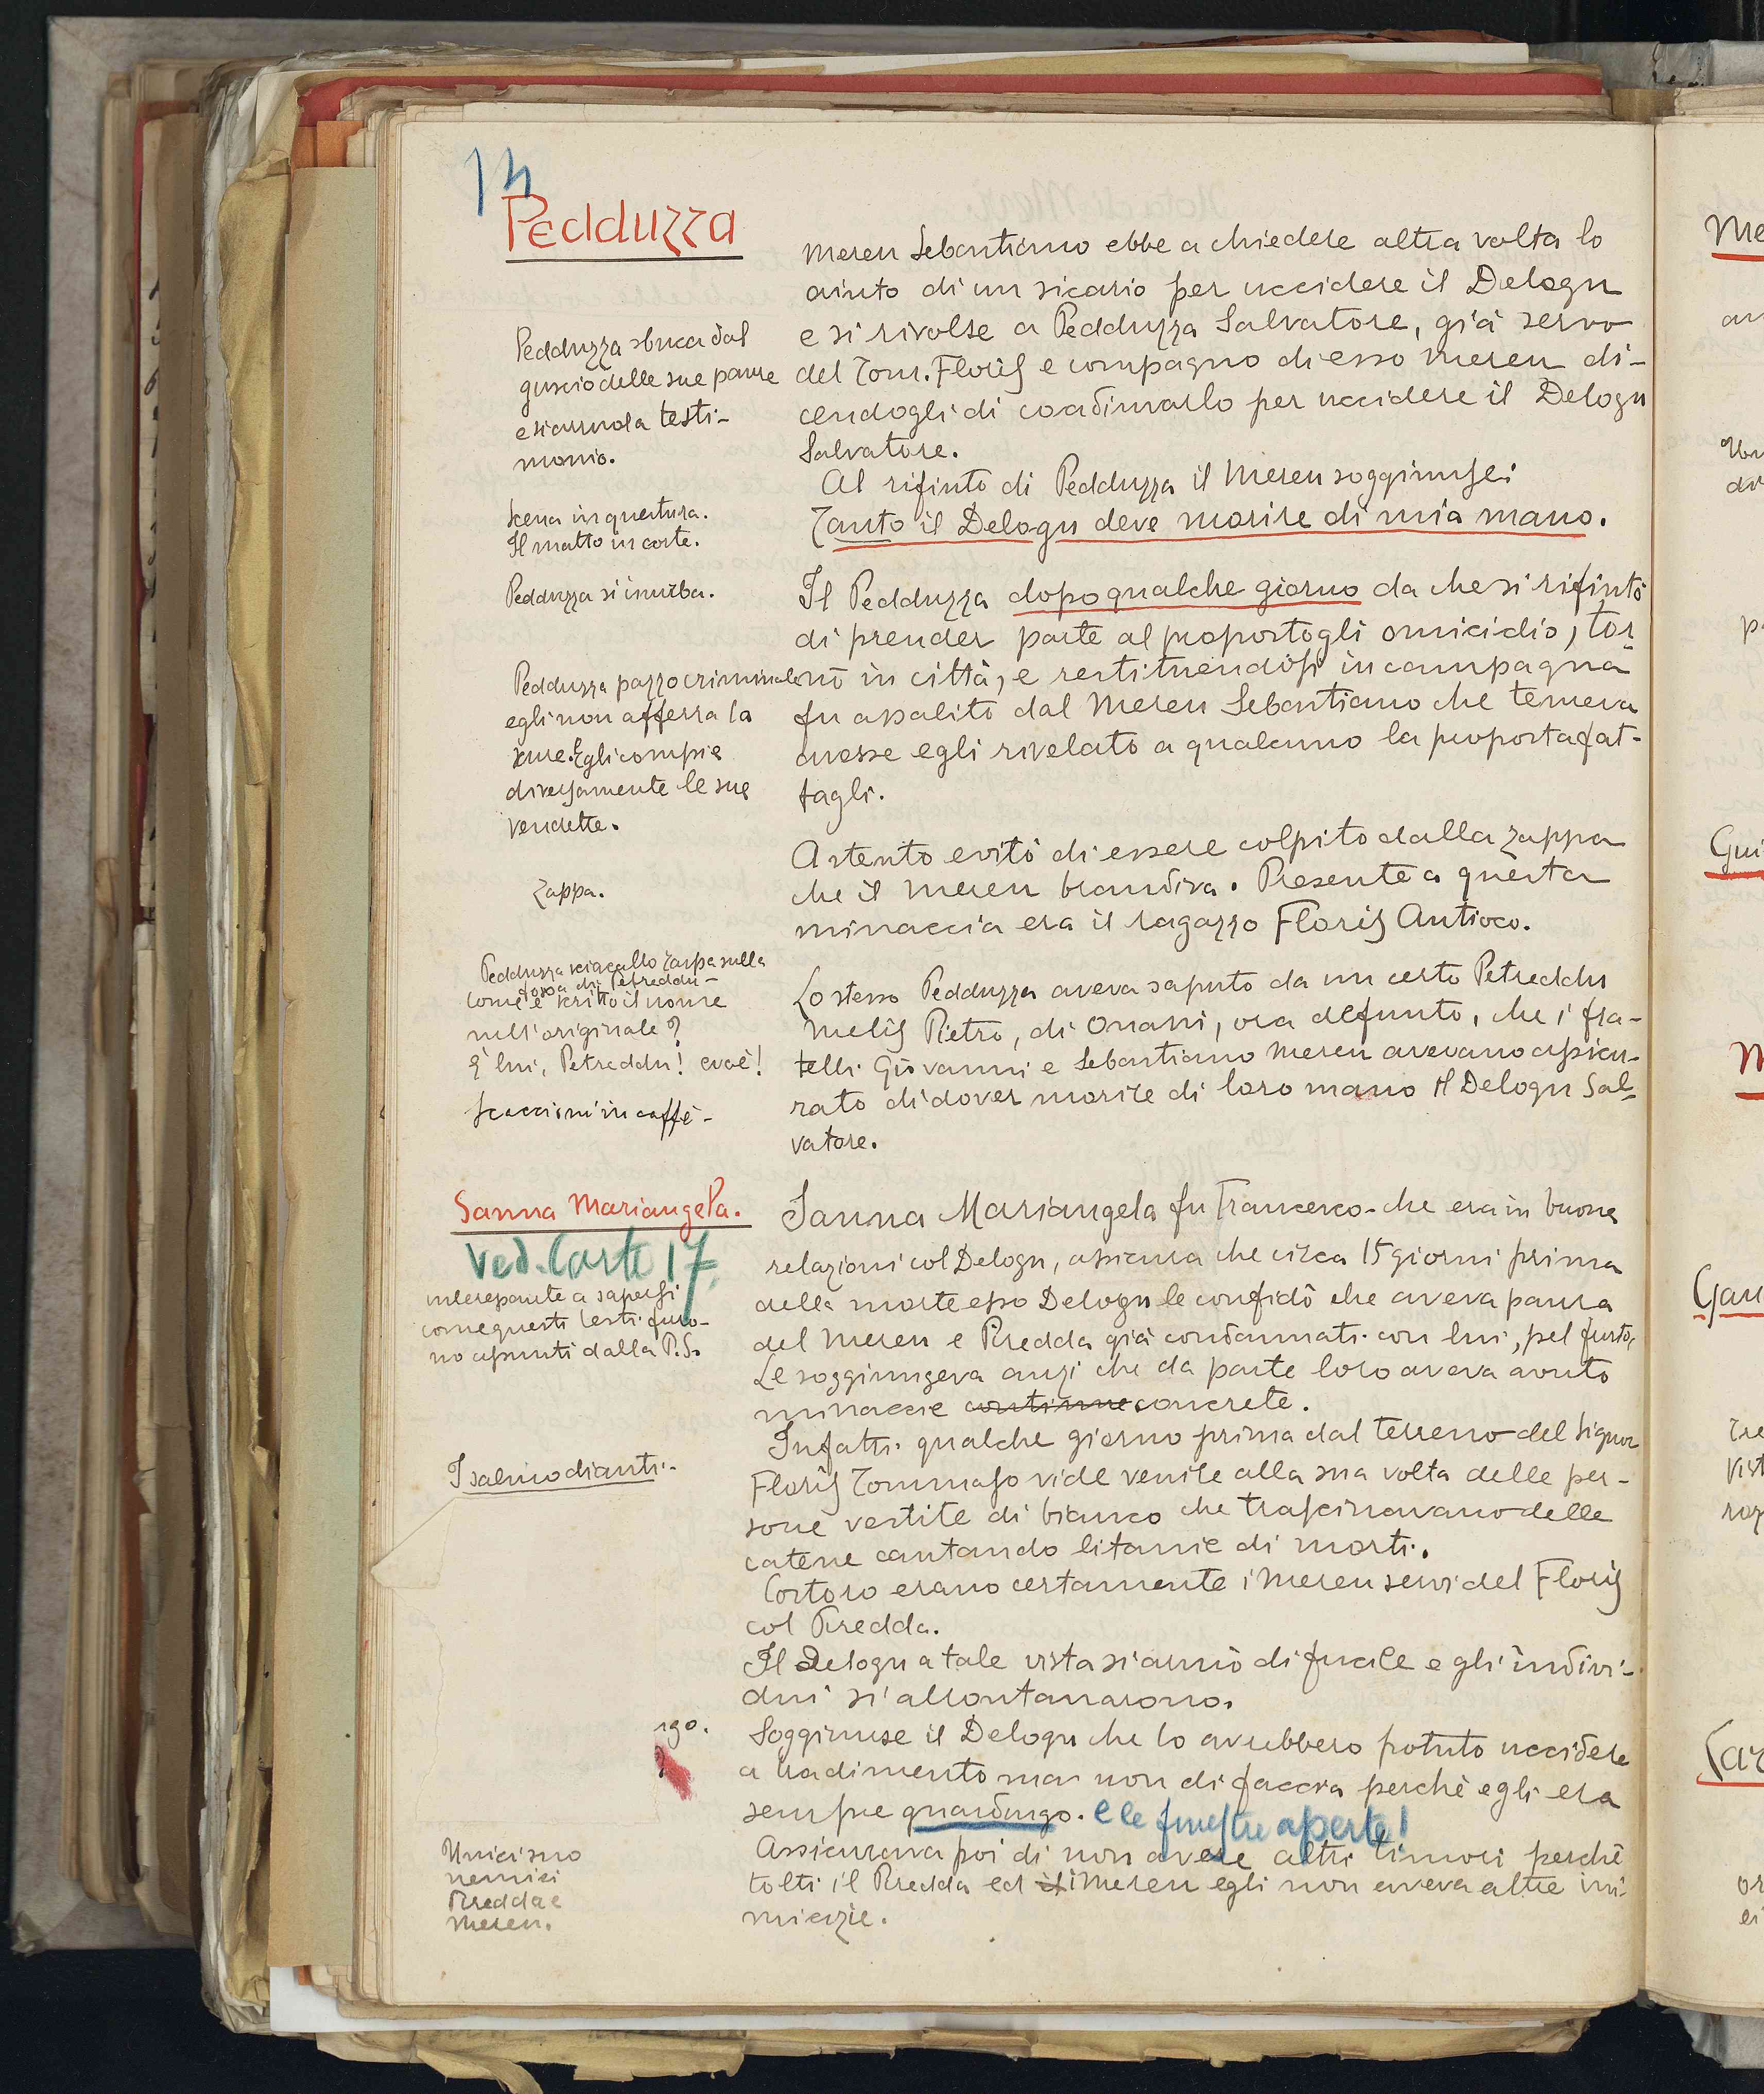 14
Pedduzza
Mereu Sebastiano ebbe a chiedere altra volta lo
aiuto di un sicario per uccidere il Delogu
e si rivolse a Pedduzza Salvatore, già servo
del Tom. Floris e compagno di esso Mereu di-
cendogli di coadiuvarlo per uccidere il Delogu
Salvatore.
Al rifiuto di Pedduzza il Mereu soggiunse:
Tanto il Delogu deve morire di mia mano.
Il Pedduzza dopo qualche giorno da che si rifiutò
di prender parte al propostogli omicidio, tor
nò in città, e restituendosi in campagna
fu assalito dal Mereu Sebastiano che temeva
avesse egli rivelato a qualcuno la proposta fat-
tagli.
A stento evitò di essere colpito dalla zappa
che il Mereu brandiva. Presente a questa
minaccia era il ragazzo Floris Antioco.
Lo stesso Pedduzza aveva saputo da un certo Petreddu
Melis Pietro, di Onani, ora defunto, che i fra-
telli Giovanni e Sebastiano Mereu avevano assicu-
rato di dover morire di loro mano il Delogu Sal-
vatore.
Pedduzza sbuca dal
guscio delle sue paure
e si arruola testi-
monio.
Scena in questura.
Il matto in corte.
Pedduzza si inurba.
Pedduzza pazzo criminale
egli non afferra la
scure. Egli compie
diversamente le sue
vendette.
Zappa.
Pedduzza sciacallo zampa sulla
fossa di Petreddu-
come è scritto il nome
nell'originale?
È lui, Petreddu! evoè!
Scaccini in caffè-
Sanna Mariangela.
Ved. Carte 17.
interessante a sapersi
come questi testi furo-
no assunti dalla P.S.
Sanna Mariangela fu Francesco - che era in buone
relazioni col Delogu, assicura che circa 15 giorni prima
della morte esso Delogu le confidò che aveva paura
del Mereu e Piredda già condannati con lui, pel furto.
Le soggiungeva anzi che da parte loro aveva avuto
minaccie continue concrete.
Infatti qualche giorno prima dal terreno del Signor
Floris Tommaso vide venire alla sua volta delle per-
sone vestite di bianco che trascinavano delle
catene cantando litanie di morti.
Costoro erano certamente i Mereu servi del Floris
col Piredda.
Il Delogu a tale vista si armò di fucile e gli indivi-
dui si allontanarono.
Soggiunse il Delogu che lo avrebbero potuto uccidere
a tradimento ma non di faccia perchè egli era
sempre guardingo. e le finestre aperte!
Assicurava poi di non avere altri timori perchè
tolti il Piredda ed il i Mereu egli non aveva altre ini
micizie.
I salmodianti.-
ngo.
?
Unici suo
nemici
Piredda e
Mereu.
Me
Gui
M
Gau